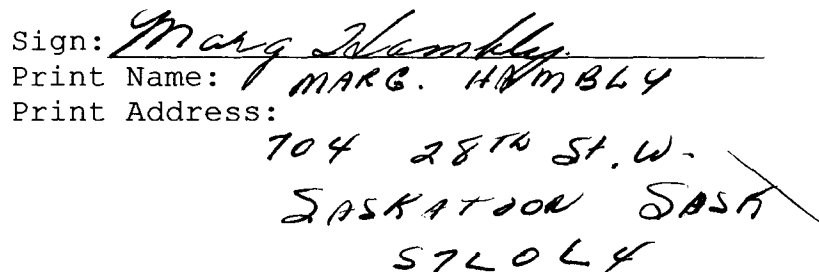 Sign: Marg Hambly.
Print Name: MARG. HAMBLY
Print Address:
704 28TH St. W.
SASKATOON SASK
S7L0L4